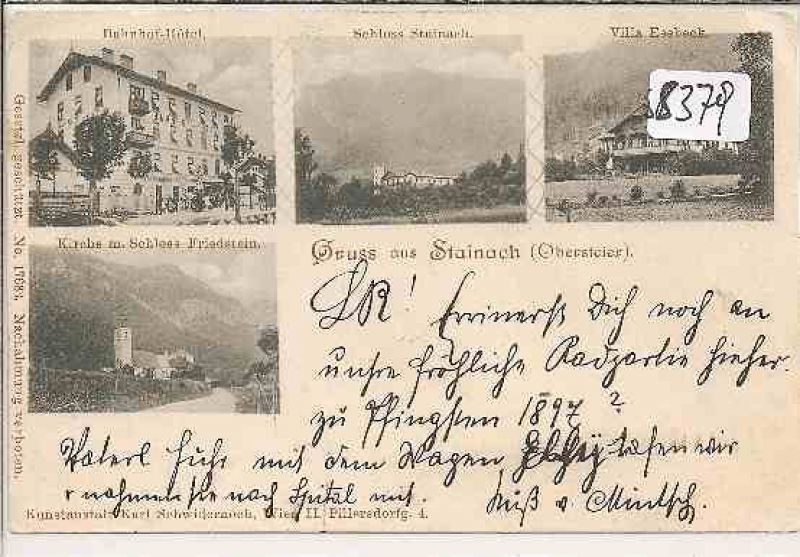 Bahnhof-Hôtel.
Schloss Stainach.
Villa Esebeck.
S8379
Kirche m. Schloss Friedstein.
Gesetzl. geschützt. No. 17683. Nachahmung verboten.
Gruss aus Stainach (Obersteier).
LR! Errinerst Dich noch an
unsre fröhliche Radpartie hieher
zu Pfingsten 1897?
Vaterl fuhr mit dem Wagen, trafen wir
u nahmen sie nach Spital mit.
Kuß v. Mintsch.
Kunstanstalt Karl Schwidernoch, Wien II. Pillersdorfg. 4.